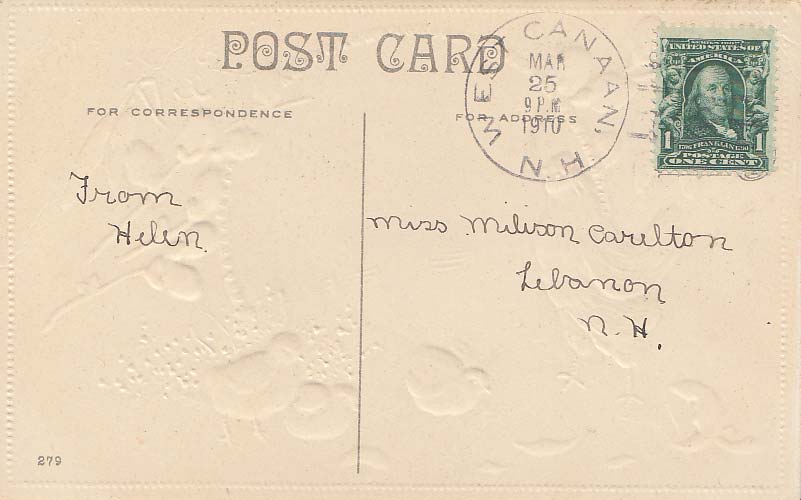 POST CARD
WEST CANAAN, N.H.
MAR
25
9 P.M
1910
SERIES 1902
UNITED STATES OF
AMERICA
1 1706 FRANKLIN 1790 1
POSTAGE
ONE CENT
FOR CORRESPONDENCE
FOR ADDRESS
From
Helen.
Miss Milison Carelton
Lebanon
N. H.
279